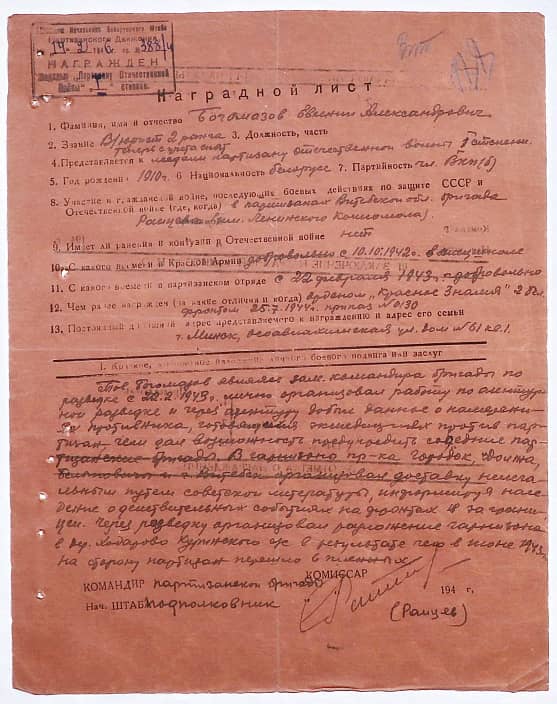 Приказом Начальника Белорусского Штаба
Партизанского Движения
НАГРАЖДЕН
Медалью „Партизану Отечественной
Войны" I степени.
Наградной лист
1. Фамилия, имя и отчество Богомазов Евгений Александрович
2. Звание В/юрист 2 ранга 3. Должность, часть
4. Представляется к медали партизану отечественной войны I степени
5. Год рождения 1910 г. 6 Национальность беларус 7. Партийность чл. ВКП(б)
8. Участие в гражданской войне, последующих боевых действиях по защите СССР и
Отечественной войне (где, когда) в партизанах Витебской обл. бригада
Райцева (им. Ленинского Комсомола)
9. Имеет ли ранения и контузии в Отечественной войне нет
10. С какого времени в Красной Армии добровольно с 10.10.1942 г.
11. С какого времени в партизанском отряде с 22 февраля 1943 г. добровольно
12. Чем ранее награжден (за какие отличия и когда) орденом „Красное Знамя" 2 Бел.
фронтом 25.7.1944 г. приказ № 0130
13. Постоянный домашний адрес представляемого к награждению и адрес его семьи
г. Минск, осоавиахимская ул. дом № 61 кв. 1.
I. Краткое, конкретное изложение личного боевого подвига или заслуг
Тов. Богомазов являясь зам. командира бригады по
разведке с 22.2.1943 г. лично организовал работу по агентур
ной разведке и через агентуру добыл данные о намерени
ях противника, экспедициях против пар
тизан, чем дал возможность предупредить соседние пар
тизанские бригады. В гарнизоны пр-ка городок,
и г. Витебск организовал доставку нелега
льным путем советской литературы, информируя насе
ление о действительных событиях на фронтах и за грани
цей. Через разведку организовал разложение гарнизона
в результате чего в июне 1943 г.
на сторону партизан перешло
КОМАНДИР партизанской бригады КОМИССАР
Нач. ШТАБ подполковник 194 г.
(Райцев)